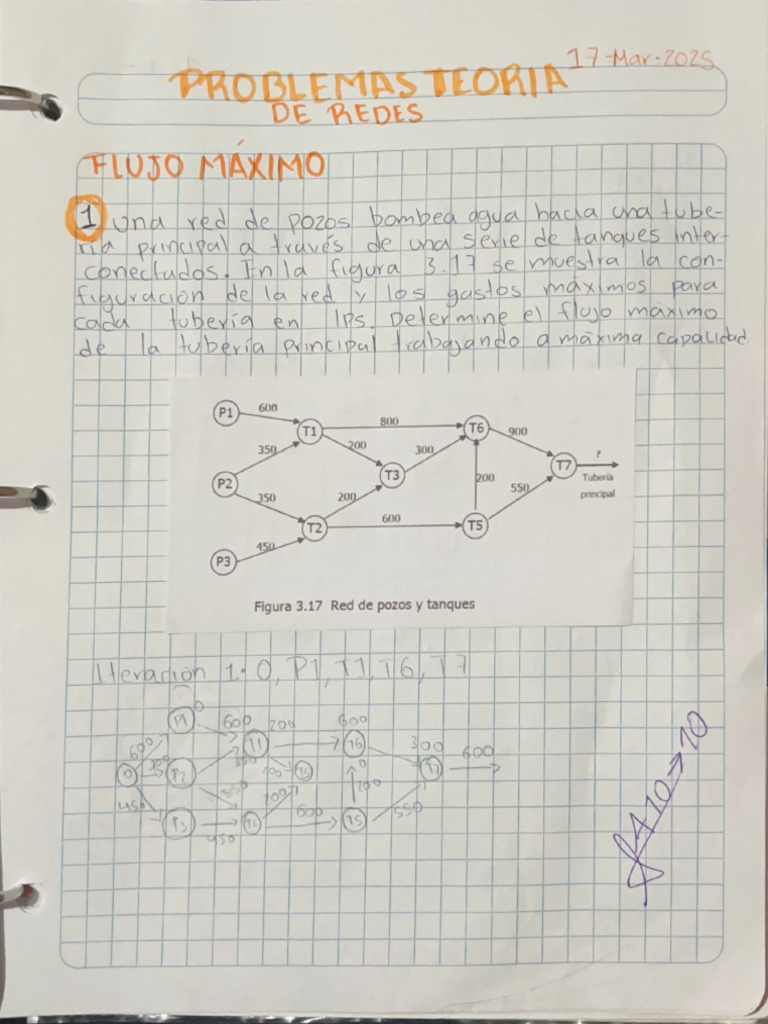 17-Mar-2025
PROBLEMAS TEORIA
DE REDES
FLUJO MÁXIMO
1 Una red de pozos bombea agua hacia una tube-
ría principal a través de una serie de tanques inter-
conectados. En la figura 3.17 se muestra la con-
figuración de la red y los gastos máximos para
cada tubería en lPs. Determine el flujo máximo
de la tubería principal trabajando a máxima capacidad.
P1 600 800 T6 900
T1
350 200 300 T7 ?
P2 T3 200 Tubería
350 200 550 principal
T2 600 T5
P3 450
Figura 3.17 Red de pozos y tanques
Iteración 1: O, P1, T1, T6, T7
P1 0 600 200 600
600 T1 T6 300 600
O P2 T7
450 200 200 550
P3 450 600 T5